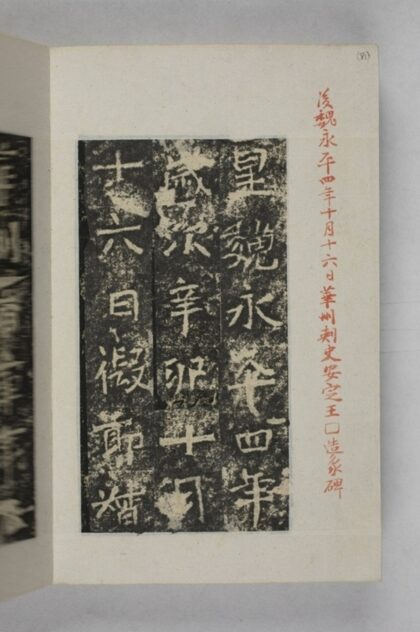 後魏永平四年十月十六日華州刺史安定王□造象碑
皇魏永平四年
歲次辛卯十月
十六日假節督